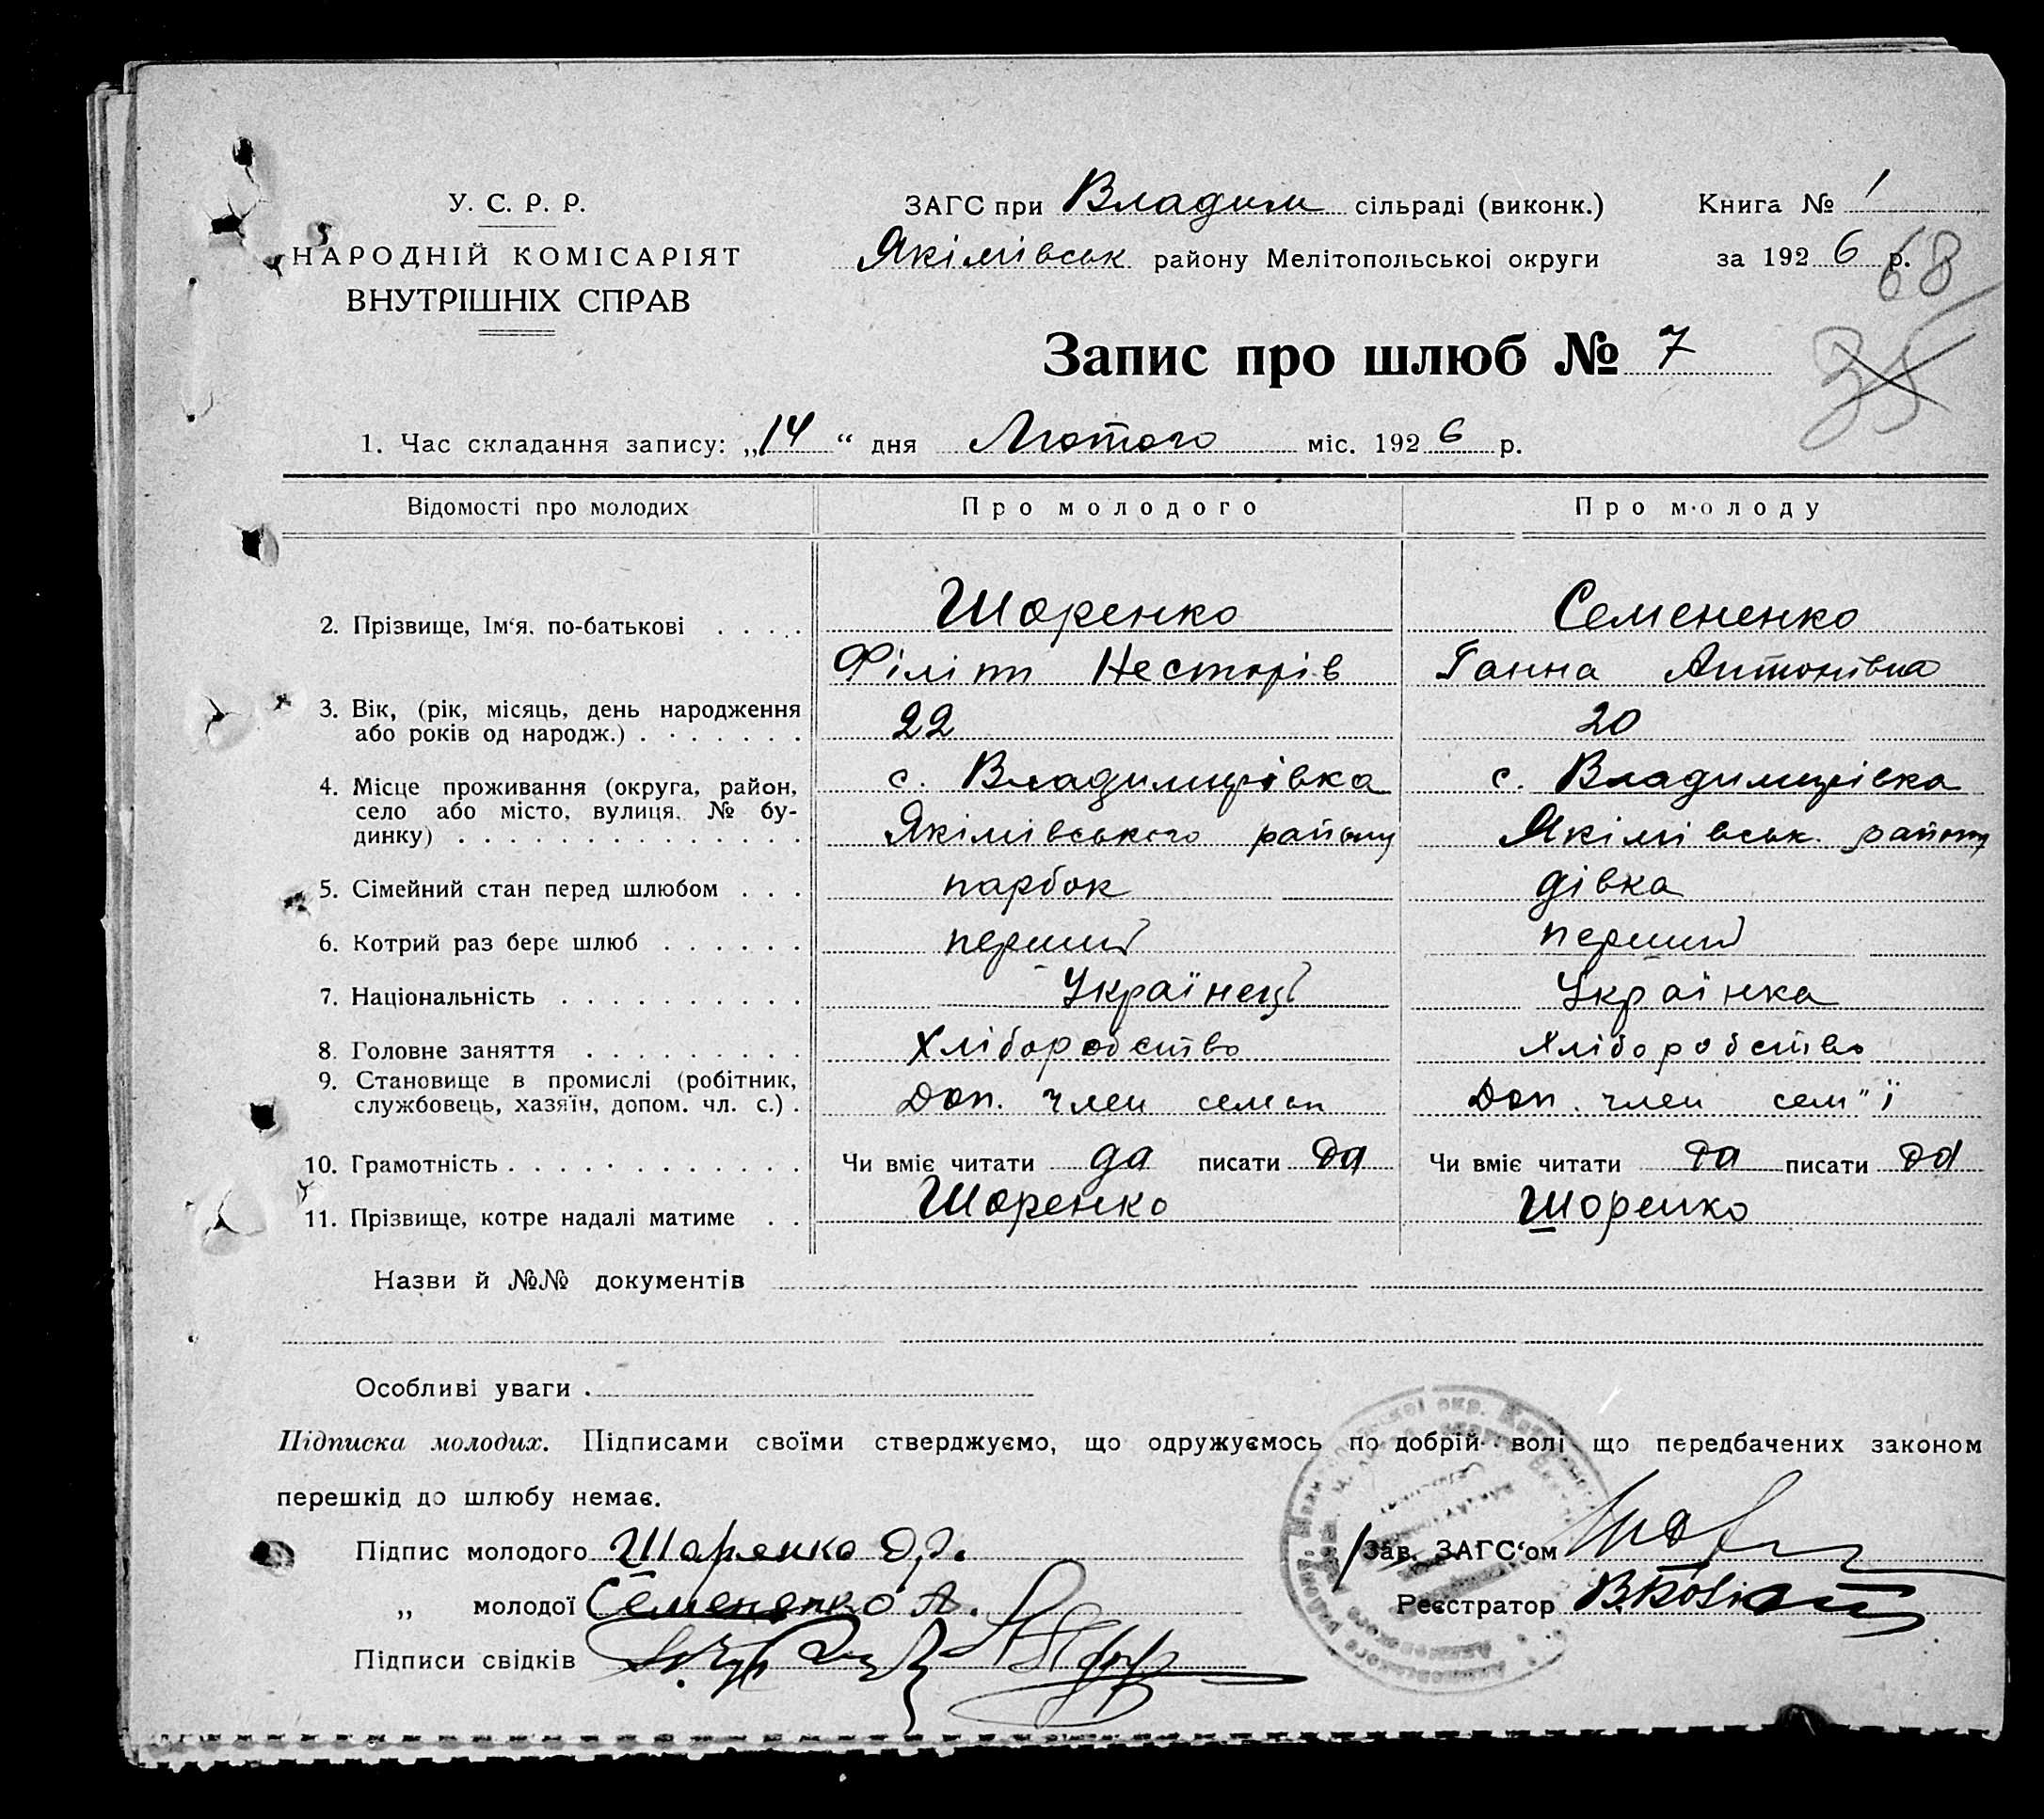 У. С. Р. Р.
НАРОДНІЙ КОМІСАРІЯТ
ВНУТРІШНІХ СПРАВ
ЗАГС при Владим сільраді (виконк.) Книга № 1
Якімівськ району Мелітопольської округи за 1926 р.
68
35
Запис про шлюб № 7
1. Час складання запису: „14“ дня Лютого міс. 1926 р.
Відомості про молодих Про молодого Про молоду
2. Прізвище, Ім‘я, по-батькові . . . . Шоренко Семененко
Філіпп Несторів Ганна Антонівна
3. Вік, (рік, місяць, день народження
або років од народж.) . . . . . . . 22 20
4. Місце проживання (округа, район, с. Владимирівка с. Владимирівка
село або місто, вулиця, № бу-
динку) . . . . . . . . . . . . . . Якімівського району Якімівськ. району
5. Сімейний стан перед шлюбом . . . парбок дівка
6. Котрий раз бере шлюб . . . . . . перший перший
7. Національність . . . . . . . . . . Українець Українка
8. Головне заняття . . . . . . . . . Хліборобство Хліборобство
9. Становище в промислі (робітник,
службовець, хазяїн, допом. чл. с.) . Доп. член семьи Доп. член сем"ї
10. Грамотність . . . . . . . . . . . . Чи вміє читати да писати да Чи вміє читати да писати да
11. Прізвище, котре надалі матиме . . Шоренко Шоренко
Назви й №№ документів
Особливі уваги .
Підписка молодих. Підписами своїми стверджуємо, що одружуємось по добрій волі що передбачених законом
перешкід до шлюбу немає.
Підпис молодого Шоренко
Зав. ЗАГС‘ом
„ молодої Семененко А.
Реєстратор
Підписи свідків